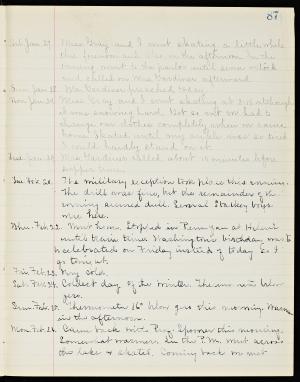 87
Sat. Jan. 27. Miss Gray and I went skating a little while
this forenoon and also in the afternoon. In the
evening went to the parlor until seven o'clock
and called on Mrs. Gardiner afterward.
Sun. Jan. 28. Mr. Gardiner preached today.
Mon. Jan. 29. Miss Gray and I went skating at 3 P.M. although
it was snowing hard. Got so wet we had to
change our clothes immediately when we came
home. Skated until my ankle was so tired
I could hardly stand on it.
Tues. Jan. 30. Mrs. Gardiner called about 10 minutes before
supper
Tue. Feb. 20. The military reception took place this evening.
The drill was fine, but the remainder of the
evening seemed dull. Several Starkey boys
were here.
Thur. Feb. 22. Went home. Stopped in Penn Yan at Helen's
until train time. Washington's birthday was to
be celebrated on Friday instead of today so I
go tonight.
Fri. Feb. 23. Very cold.
Sat. Feb. 24. Coldest day of the winter. Thermom. below
zero.
Sun. Feb. 25. Thermometer 16° below zero this morning. Warmer
in the afternoon.
Mon. Feb. 26. Came back with Prof. Spooner this morning.
Somewhat warmer. In the P.M. went across
the lake & skated. Coming back we met